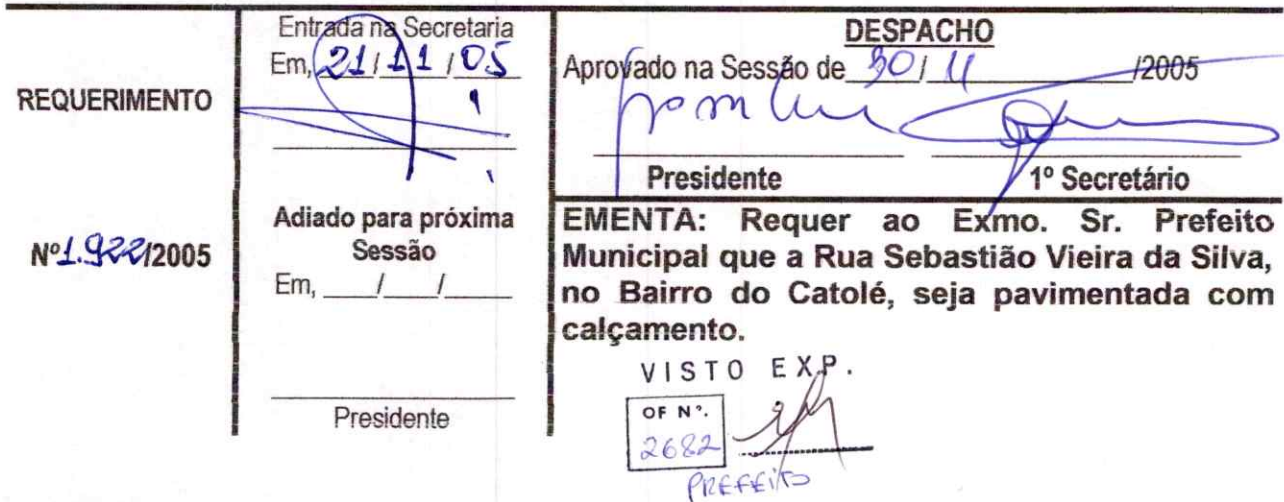 REQUERIMENTO
Nº1.922/2005
Entrada na Secretaria
Em, 21/11/05
Adiado para próxima
Sessão
Em, ____/____/______
Presidente
DESPACHO
Aprovado na Sessão de 30/11/2005
Presidente 1º Secretário
EMENTA: Requer ao Exmo. Sr. Prefeito
Municipal que a Rua Sebastião Vieira da Silva,
no Bairro do Catolé, seja pavimentada com
calçamento.
VISTO EXP.
OF Nº.
2682
PREFEITO